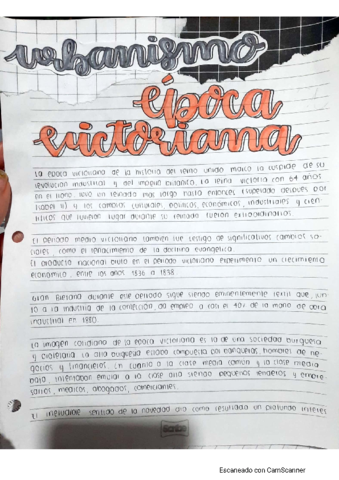 urbanismo
época
victoriana
La época victoriana de la historia del reino unido marcó la cúspide de su
revolución industrial y del imperio británico. La reina victoria con 64 años
en el trono, tuvo un reinado más largo hasta entonces (superado después por
Isabel II) y los cambios culturales, políticos, económicos, industriales y cien
tíficos que tuvieron lugar durante su reinado fueron extraordinarios.
El periodo medio victoriano también fue testigo de significativos cambios so-
ciales, como el renacimiento de la doctrina evangélica
El producto nacional bruto en el periodo victoriano experimentó un crecimiento
económico, entre los años 1836 a 1838
Gran Bretaña durante este periodo sigue siendo eminentemente textil que, jun
to a la industria de la confección, da empleo a casi el 40% de la mano de obra
industrial en 1880.
La imagen cotidiana de la época victoriana es la de una sociedad burguesa
y proletaria. La alta burguesía estaba compuesta por banqueros, hombres de ne-
gocios y financieros. En cuanto a la clase media común y la clase media
baja, intentaban emular a la clase alta siendo pequeños tenderos y empre
sarios, médicos, abogados, comerciantes.
El insinuante sentido de la novedad dio como resultado un profundo interés
Escaneado con CamScanner